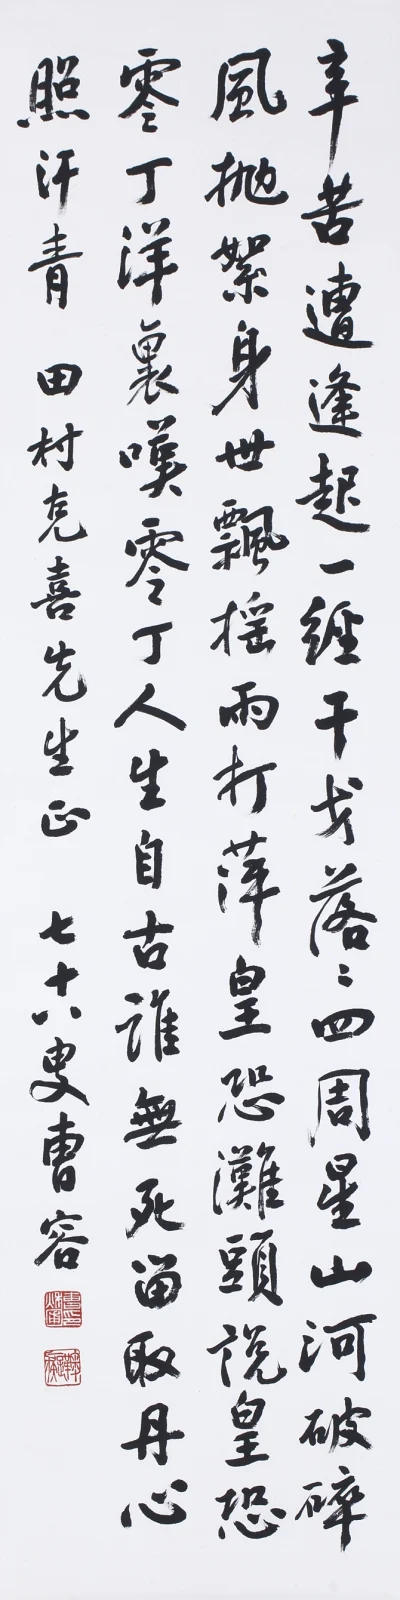 辛苦遭逢起一經干戈落〻四周星山河破碎
風拋絮身世飄搖雨打萍皇恐灘頭說皇恐
零丁洋裏嘆零丁人生自古誰無死留取丹心
照汗青 田村克喜先生正 七十八叟曹容